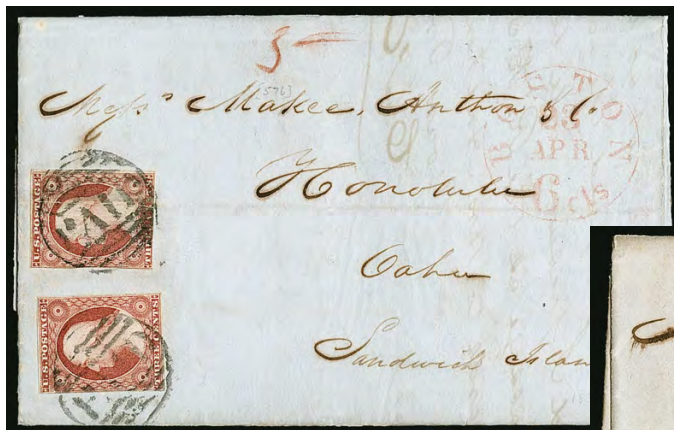 5
[576]
Messrs Makee, Anthon & Co.
BOSTON
23
APR
6 cts
Honolulu
Oahu
Sandwich Islan
U.S. POSTAGE
PAID
THREE CENTS
U.S. POSTAGE
PAID
THREE CENTS